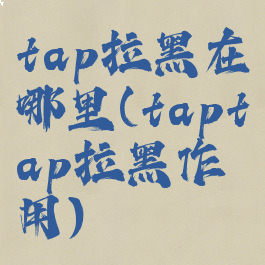 tap拉黑在
哪里(tapt
ap拉黑作
用)